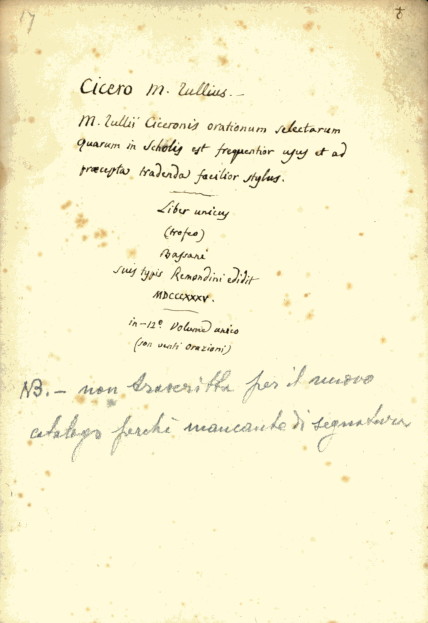 17
Cicero M. Tullius. —
M. Tullii Ciceronis orationum selectarum
quarum in Scholis est frequentior usus et ad
præcepta tradenda facilior stylus.
Liber unicus
(trofeo)
Bassani
suis typis Remondini edidit
MDCCCXXXV.
in-12º Volume unico
(son venti orazioni)
NB. — non trascritta per il nuovo
catalogo perchè mancante di segnatura